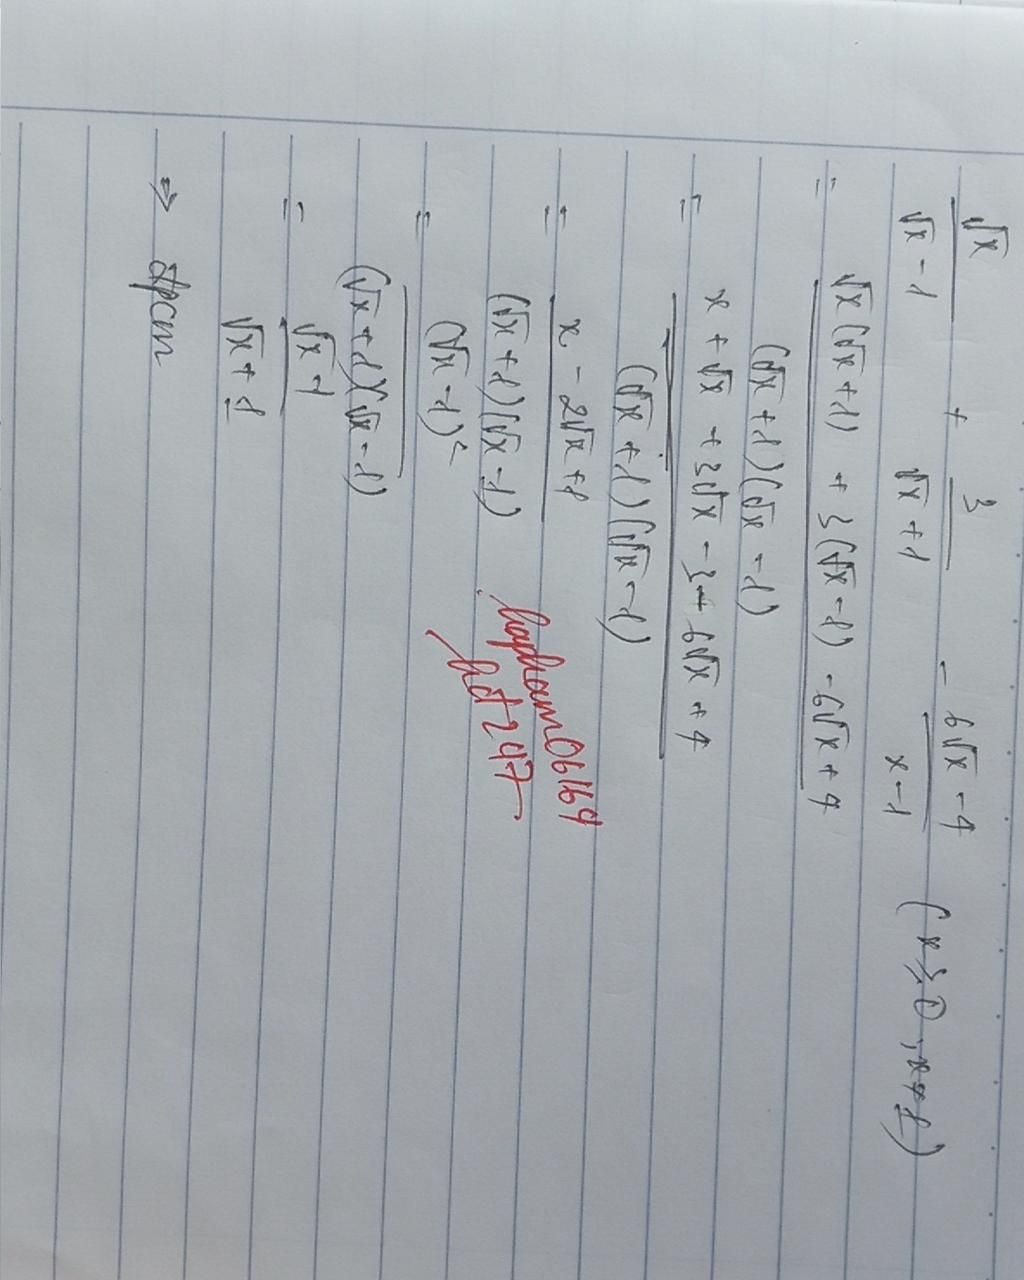 √x/(√x - 1) + 3/(√x + 1) - (6√x - 4)/(x - 1) (x ≥ 0; x ≠ 1)
= (√x(√x + 1) + 3(√x - 1) - 6√x + 4)/((√x + 1)(√x - 1))
= (x + √x + 3√x - 3 - 6√x + 4)/((√x + 1)(√x - 1))
= (x - 2√x + 1)/((√x + 1)(√x - 1))
= (√x - 1)²/((√x + 1)(√x - 1))
= (√x - 1)/(√x + 1)
⇒ đpcm
hapham06169
hdt247